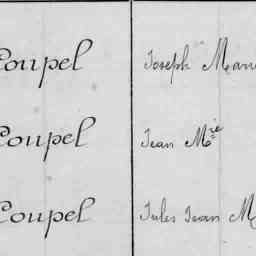 Coupel Joseph Marie
Coupel Jean Mie
Coupel Jules Jean M